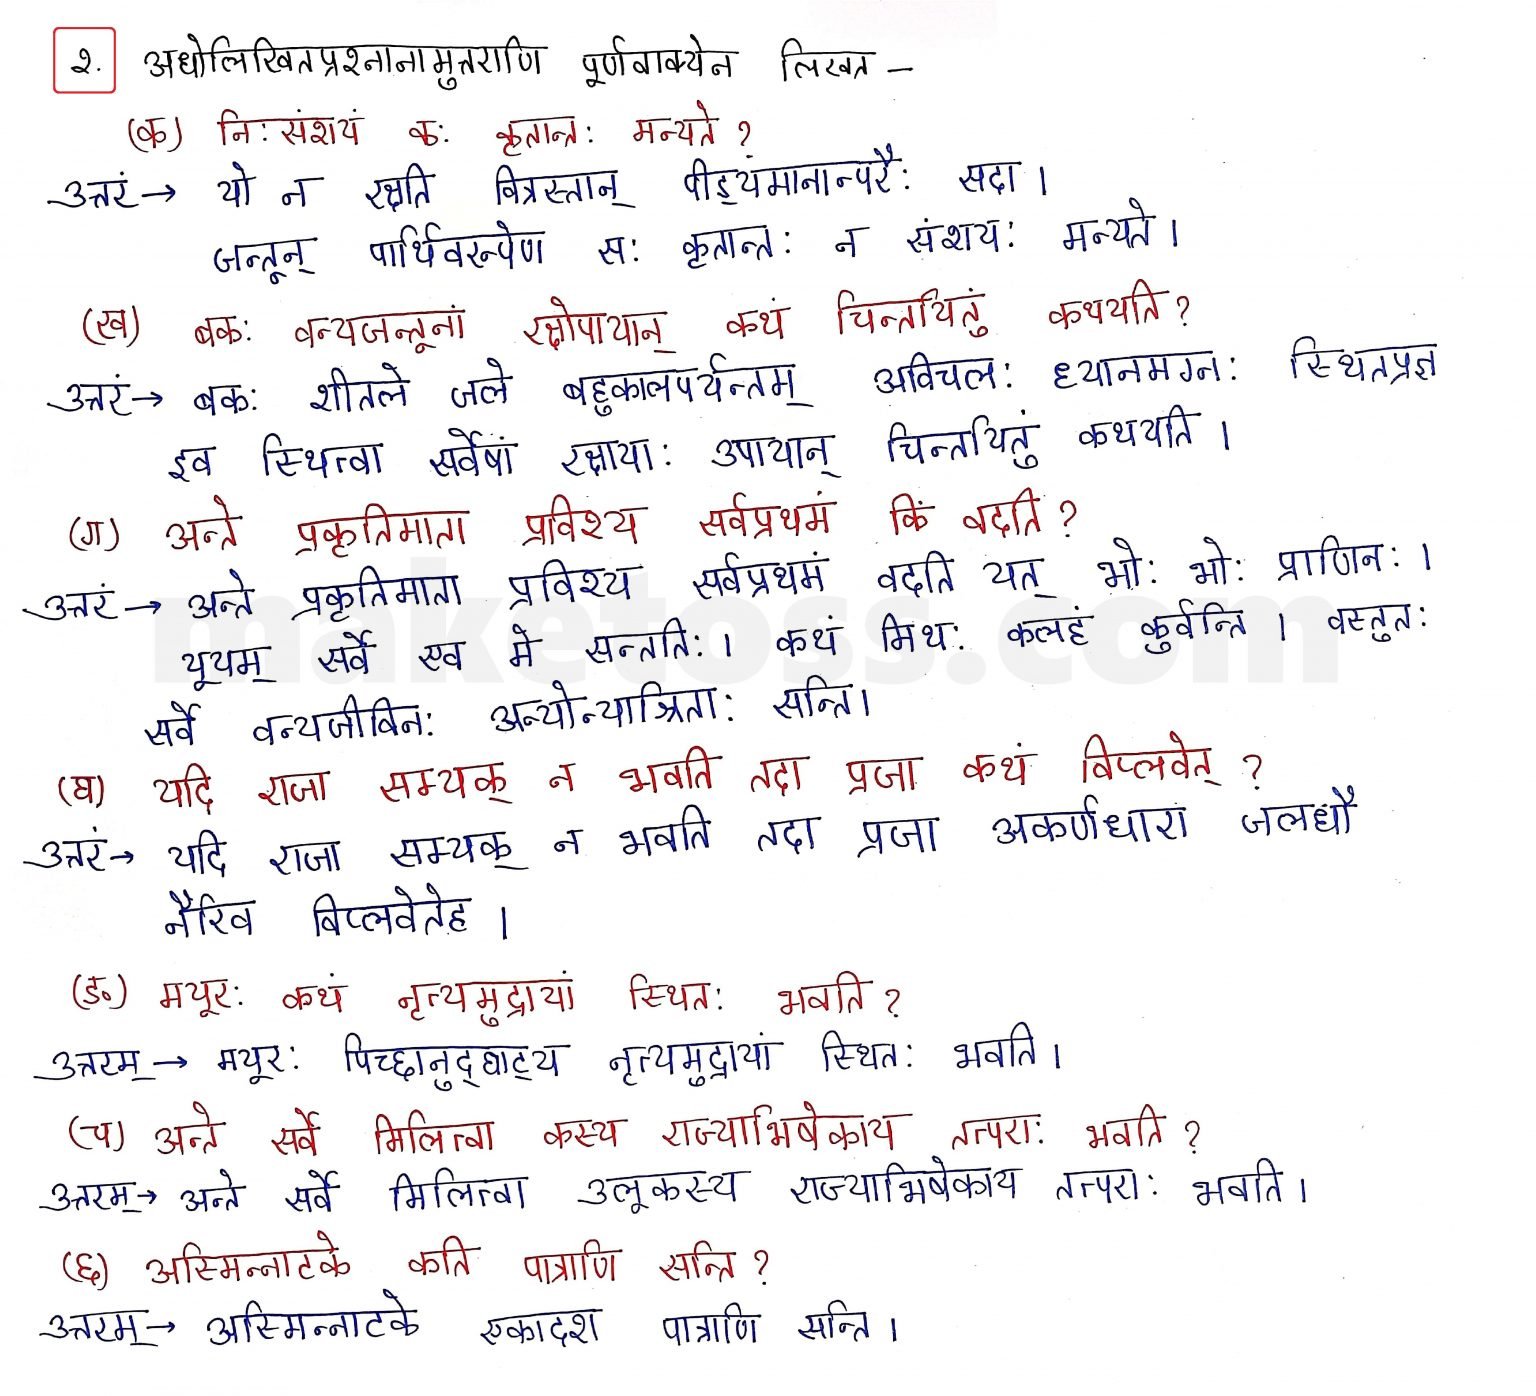 २. अधोलिखितप्रश्नानामुत्तराणि पूर्णवाक्येन लिखत –
(क) निःसंशयं कः कृतान्तः मन्यते ?
उत्तरं → यो न रक्षति वित्रस्तान् पीड्यंमानान्परैः सदा ।
जन्तून् पार्थिवरूपेण सः कृतान्तः न संशयः मन्यते ।
(ख) बकः वन्यजन्तूनां रक्षोपायान् कथं चिन्तयितुं कथयति ?
उत्तरं → बकः शीतले जले बहुकालपर्यन्तम् अविचलः ध्यानमग्नः स्थितप्रज्ञ
इव स्थित्वा सर्वेषां रक्षायाः उपायान् चिन्तयितुं कथयति ।
(ग) अन्ते प्रकृतिमाता प्रविश्य सर्वप्रथमं किं वदति ?
उत्तरं → अन्ते प्रकृतिमाता प्रविश्य सर्वप्रथमं वदति यत् भोः भोः प्राणिनः ।
यूयम् सर्वे एव मे सन्ततिः । कथं मिथः कलहं कुर्वन्ति । वस्तुतः
सर्वे वन्यजीविनः अन्योन्याश्रिताः सन्ति ।
(घ) यदि राजा सम्यक् न भवति तदा प्रजा कथं विप्लवेत् ?
उत्तरं → यदि राजा सम्यक् न भवति तदा प्रजा अकर्णधारा जलधौ
नौरिव विप्लवेतेह ।
(ड०) मयूरः कथं नृत्यमुद्रायां स्थितः भवति ?
उत्तरम् → मयूरः पिच्छानुद्घाट्य नृत्यमुद्रायां स्थितः भवति ।
(च) अन्ते सर्वे मिलित्वा कस्य राज्याभिषेकाय तत्पराः भवति ?
उत्तरम् → अन्ते सर्वे मिलित्वा उलूकस्य राज्याभिषेकाय तत्पराः भवति ।
(छ) अस्मिन्नाटके कति पात्राणि सन्ति ?
उत्तरम् → अस्मिन्नाटके एकादश पात्राणि सन्ति ।
maketoss.com